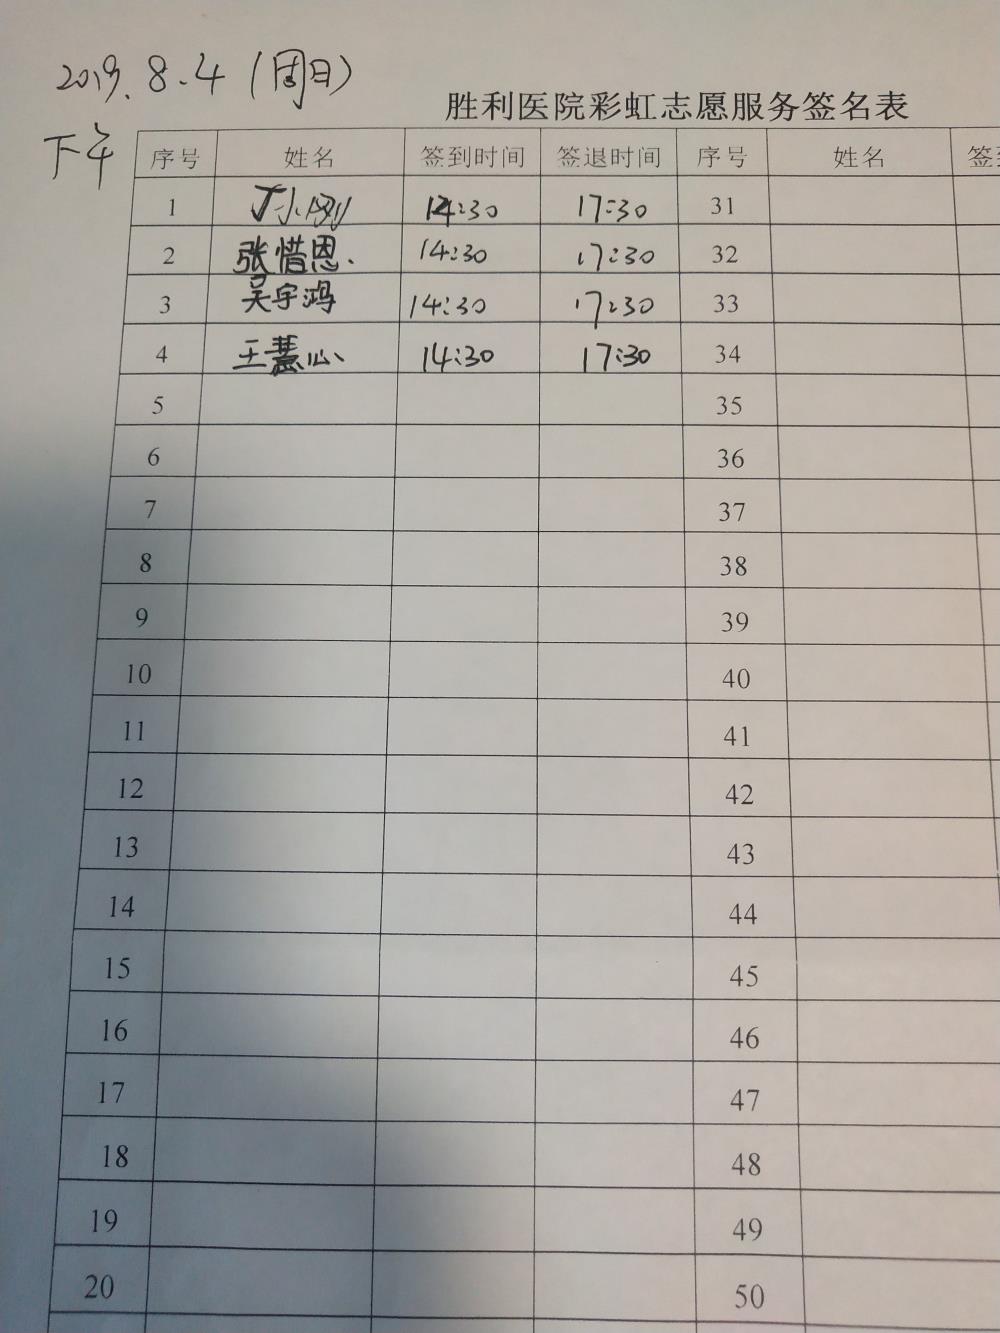 2019.8.4(周日)
胜利医院彩虹志愿服务签名表
下午
序号 姓名 签到时间 签退时间 序号 姓名 签到
1 丁小刚 14:30 17:30 31
2 张惜恩. 14:30 17:30 32
3 吴宇鸿 14:30 17:30 33
4 王慧心 14:30 17:30 34
5 35
6 36
7 37
8 38
9 39
10 40
11 41
12 42
13 43
14 44
15 45
16 46
17 47
18 48
19 49
20 50